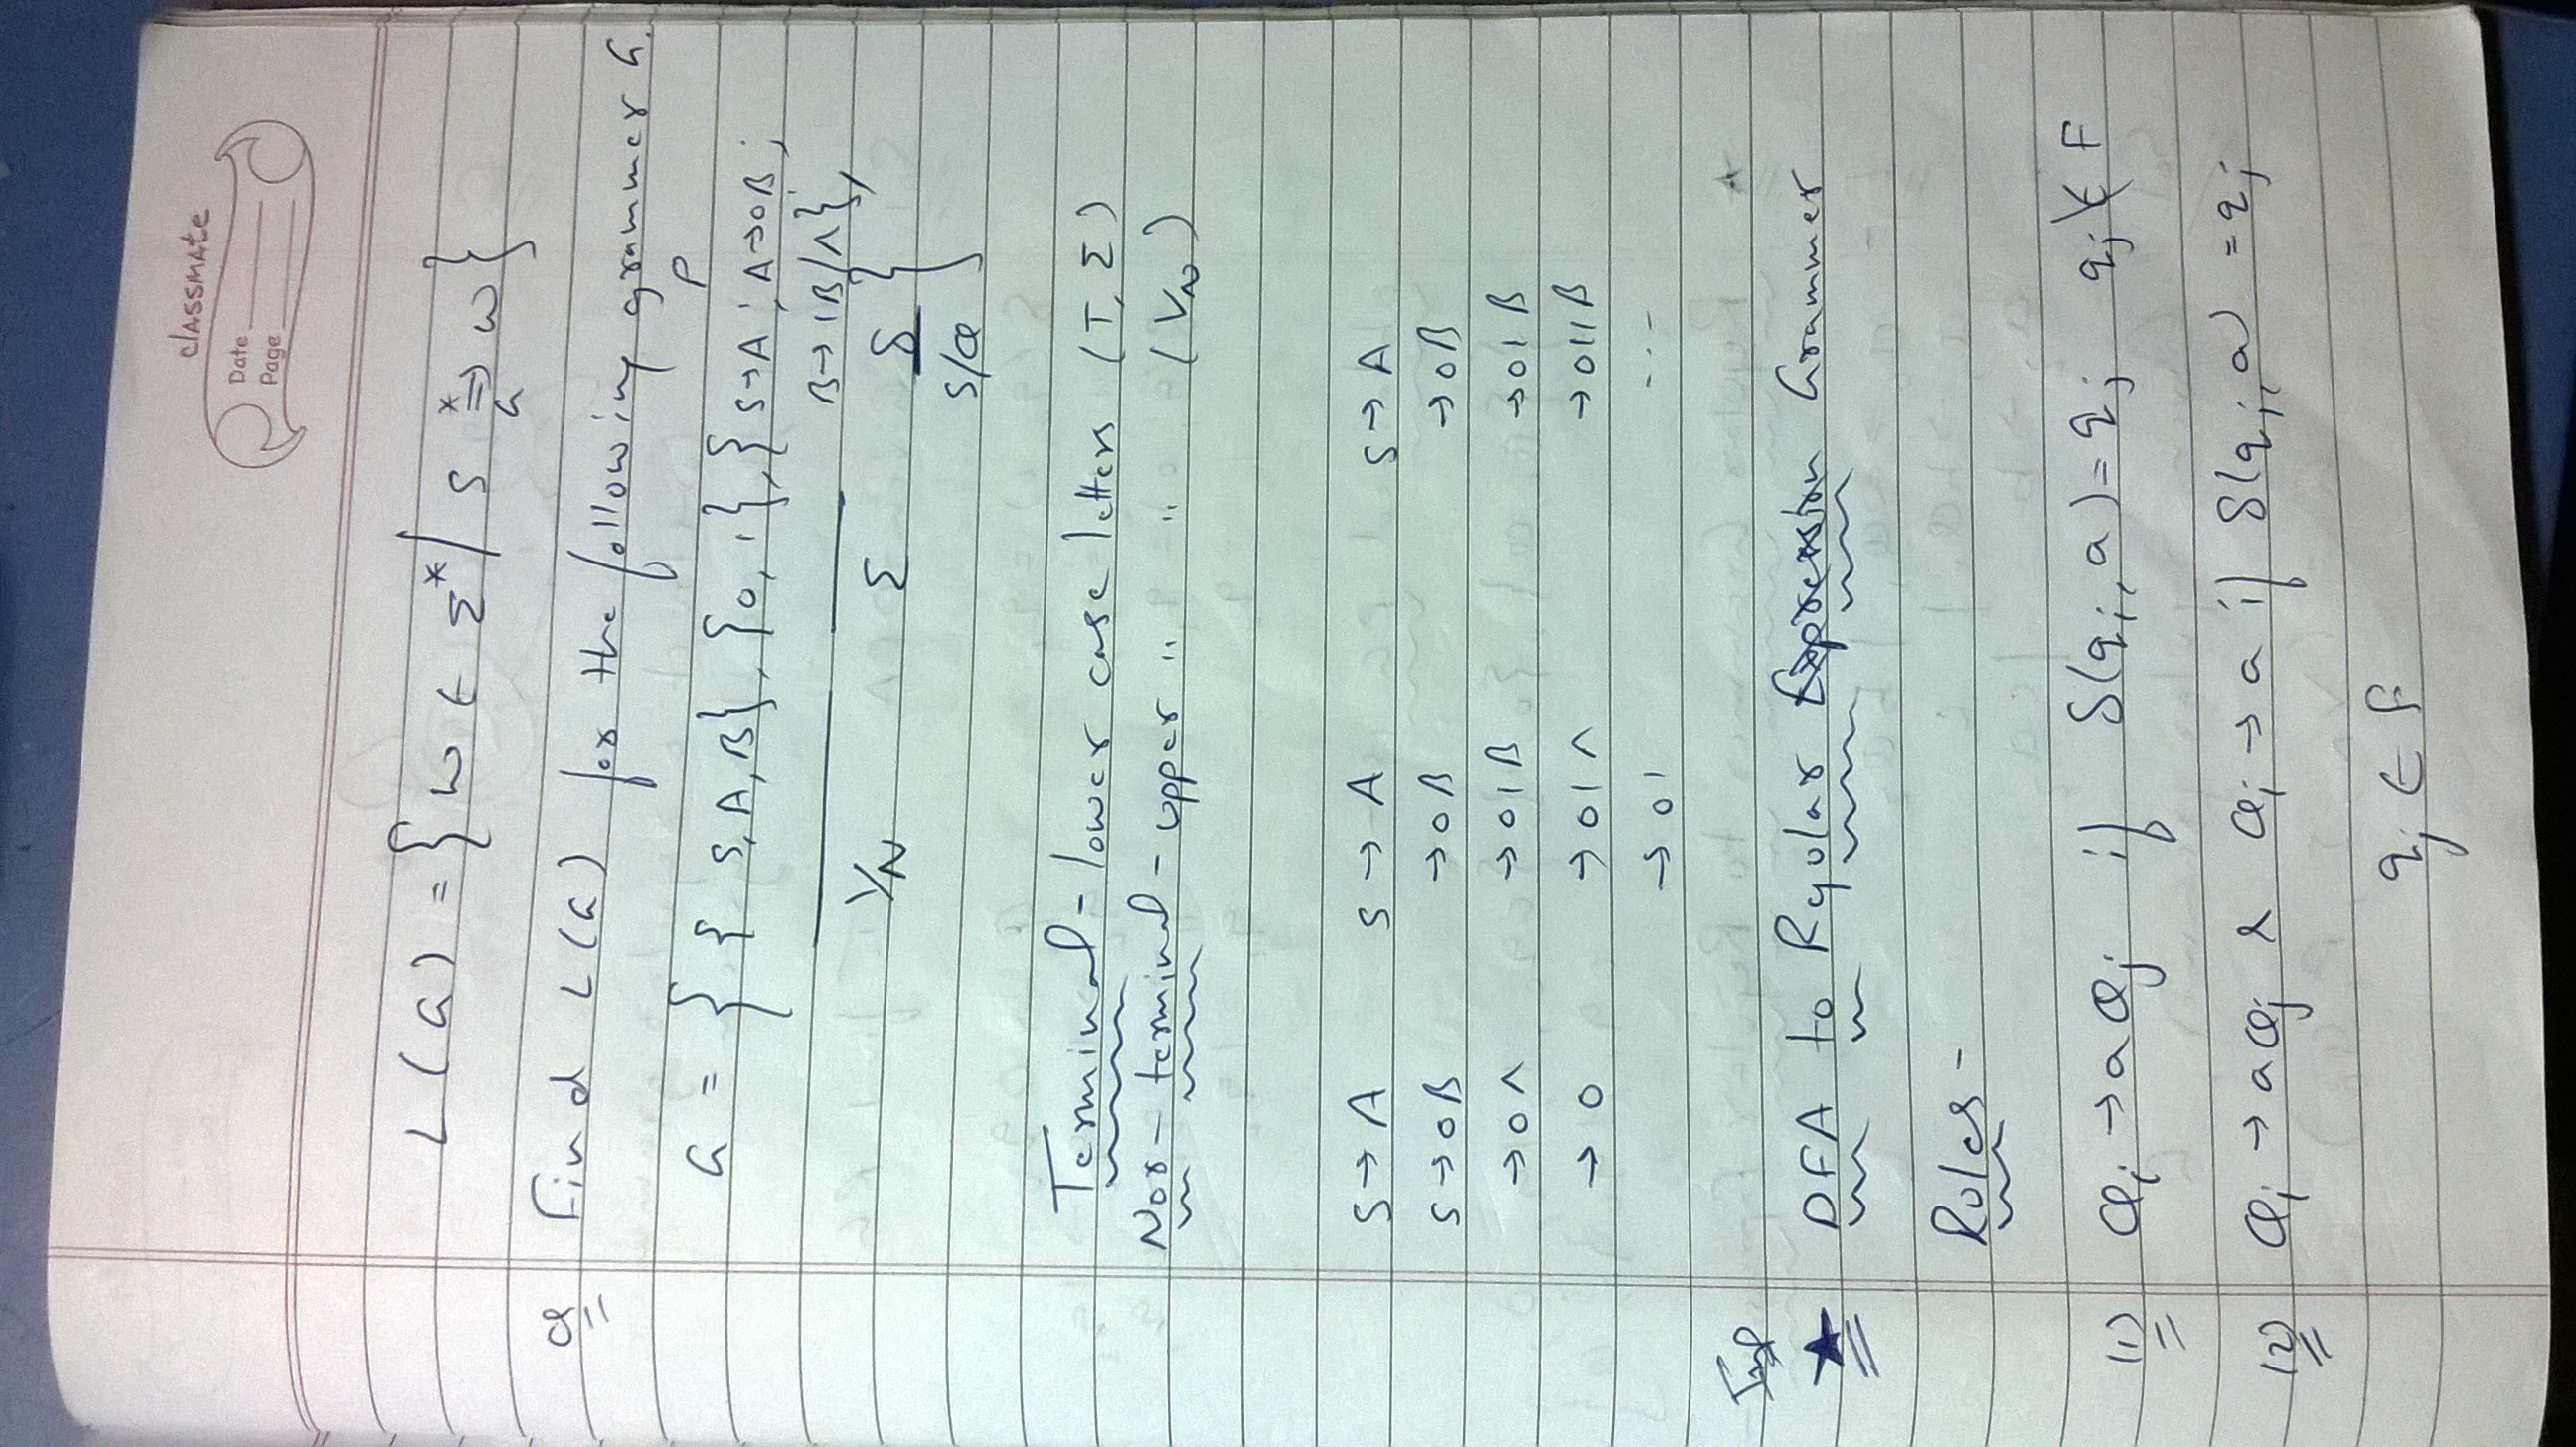 classmate
Date
Page
L(G) = { w ∈ Σ* | S *⇒G w }
Q Find L(G) for the following grammer G.
P
G = { { S, A, B}, {0, 1}, { S→A ; A→0B ;
B→1B/Λ},
VN Σ δ
S/Q }
Terminal - lower case letters (T, Σ)
Non-terminal - upper " " (VN)
S→A S→A S→A
S→0B →0B →0B
→0Λ →01B →01B
→0 →01Λ →011B
→01 ...
Imp
★ DFA to Regular Expression Grammer
Rules -
(1) Qi → aQj if δ(qi, a) = qj qj ∉ F
(2) Qi → aQj & Qi → a if δ(qi, a) = qj
qj ∈ F